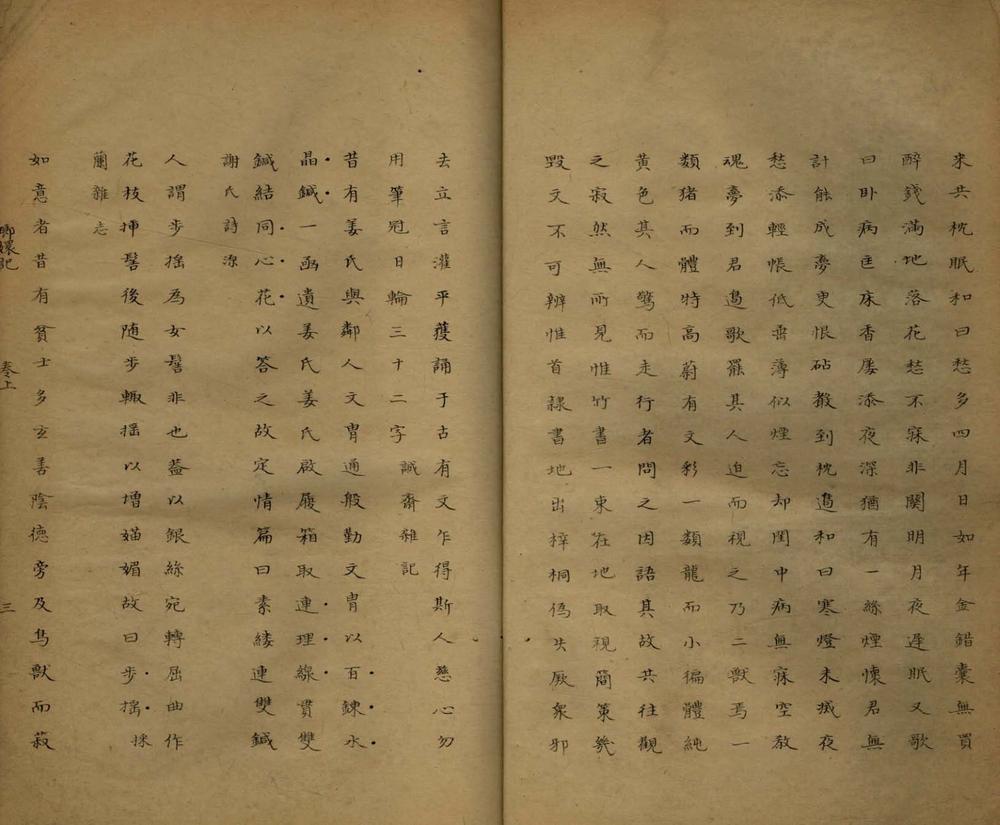 来共枕眠和曰愁多四月日如年金錯囊無買
醉錢滿地落花愁不寐非關明月夜遲眠又歌
曰卧病匡床香屢添夜深猶有一絲煙懷君無
計能成夢更恨砧敲到枕邊和曰寒燈未滅夜
愁添輕帳低垂薄似煙忘却閨中病無寐空教
魂夢到君邊歌罷其人迫而視之乃二獸焉一
類猪而體特高蔚有文彩一類龍而小徧體純
黃色其人驚而走行者問之因語其故共往觀
之寂然無所見惟竹書一束在地取視簡策幾
毀文不可辨惟首隸書地出梓桐僞失厥衆邪
去立言灌平蒦誦于古有文乍得斯人慈心勿
用筆冠日輪三十二字 誠齋雜記
昔有姜氏與鄰人文胄通殷勤文胄以百鍊水
晶鍼一函遺姜氏姜氏啟履箱取連理線貫雙
鍼結同心花以答之故定情篇曰素縷連雙鍼
謝氏詩源
人謂步搖為女髻非也蓋以銀絲宛轉屈曲作
花枝揷髻後随步輒搖以增媌媚故曰步搖 採
蘭雜志
如意者昔有貧士多玄善陰德旁及鳥獸而菽
瑯嬛記 卷上 三